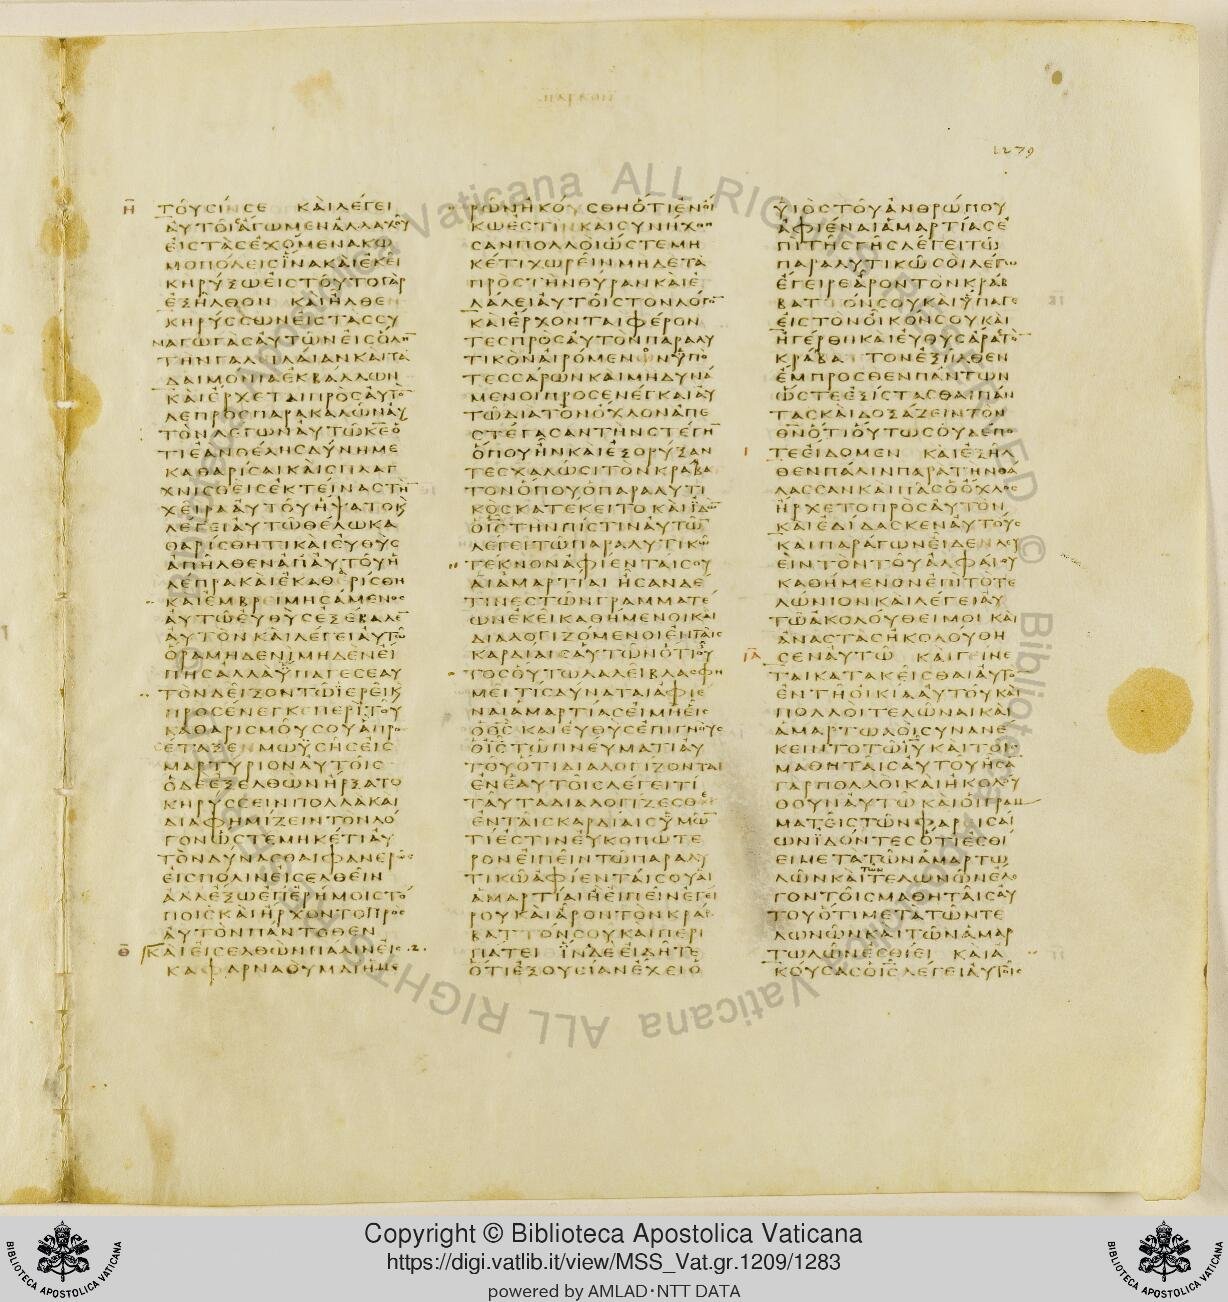 1279
Η
ΤΟΥCΙΝCΕ ΚΑΙΛΕΓΕΙ
ΑΥΤΟΙCΑΓΩΜΕΝΑΛΛΑΧΟΥ
ΕΙCΤΑCΕΧΟΜΕΝΑCΚΩ
ΜΟΠΟΛΕΙCΙΝΑΚΑΙΕΚΕΙ
ΚΗΡΥΞΩΕΙCΤΟΥΤΟΓΑΡ
ΕΞΗΛΘΟΝ ΚΑΙΗΛΘΕΝ
ΚΗΡΥCCΩΝΕΙCΤΑCCΥ
ΝΑΓΩΓΑCΑΥΤΩΝΕΙCΟΛΗ
ΤΗΝΓΑΛΙΛΑΙΑΝΚΑΙΤΑ
ΔΑΙΜΟΝΙΑΕΚΒΑΛΛΩΝ
ΚΑΙΕΡΧΕΤΑΙΠΡΟCΑΥΤΟ
ΛΕΠΡΟCΠΑΡΑΚΑΛΩΝΑΥ
ΤΟΝΛΕΓΩΝΑΥΤΩΚΕΟ
ΤΙΕΑΝΘΕΛΗCΔΥΝΗΜΕ
ΚΑΘΑΡΙCΑΙΚΑΙCΠΛΑΓ
ΧΝΙCΘΕΙCΕΚΤΕΙΝΑCΤΗ
ΧΕΙΡΑΑΥΤΟΥΗΨΑΤΟΚ
ΛΕΓΕΙΑΥΤΩΘΕΛΩΚΑ
ΘΑΡΙCΘΗΤΙΚΑΙΕΥΘΥC
ΑΠΗΛΘΕΝΑΠΑΥΤΟΥΗ
ΛΕΠΡΑΚΑΙΕΚΑΘΕΡΙCΘΗ
ΚΑΙΕΜΒΡΕΙΜΗCΑΜΕΝΟC
ΑΥΤΩΕΥΘΥCΕΞΕΒΑΛΕ
ΑΥΤΟΝΚΑΙΛΕΓΕΙΑΥΤΩ
ΟΡΑΜΗΔΕΝΙΜΗΔΕΝΕΙ
ΠΗCΑΛΛΑΥΠΑΓΕCΕΑΥ
ΤΟΝΔΕΙΞΟΝΤΩΙΕΡΕΙΚ
ΠΡΟCΕΝΕΓΚΕΠΕΡΙΤΟΥ
ΚΑΘΑΡΙCΜΟΥCΟΥΑΠΡΟ
CΕΤΑΞΕΝΜΩΥCΗCΕΙC
ΜΑΡΤΥΡΙΟΝΑΥΤΟΙC
ΟΔΕΕΞΕΛΘΩΝΗΡΞΑΤΟ
ΚΗΡΥCCΕΙΝΠΟΛΛΑΚΑΙ
ΔΙΑΦΗΜΙΖΕΙΝΤΟΝΛΟ
ΓΟΝΩCΤΕΜΗΚΕΤΙΑΥ
ΤΟΝΔΥΝΑCΘΑΙΦΑΝΕΡΩC
ΕΙCΠΟΛΙΝΕΙCΕΛΘΕΙΝ
ΑΛΛΕΞΩΕΠΕΡΗΜΟΙCΤΟ
ΠΟΙCΚΑΙΗΡΧΟΝΤΟΠΡΟC
ΑΥΤΟΝΠΑΝΤΟΘΕΝ
Θ
ΚΑΙΕΙCΕΛΘΩΝΠΑΛΙΝΕΙC .2.
ΚΑΦΑΡΝΑΟΥΜΔΙΗΜΕ
ΡΩΝΗΚΟΥCΘΗΟΤΙΕΝΟΙ
ΚΩΕCΤΙΝΚΑΙCΥΝΗΧΘΗ
CΑΝΠΟΛΛΟΙΩCΤΕΜΗ
ΚΕΤΙΧΩΡΕΙΝΜΗΔΕΤΑ
ΠΡΟCΤΗΝΘΥΡΑΝΚΑΙΕ
ΛΑΛΕΙΑΥΤΟΙCΤΟΝΛΟΓΟ
ΚΑΙΕΡΧΟΝΤΑΙΦΕΡΟΝ
ΤΕCΠΡΟCΑΥΤΟΝΠΑΡΑΛΥ
ΤΙΚΟΝΑΙΡΟΜΕΝΟΝΥΠΟ
ΤΕCCΑΡΩΝΚΑΙΜΗΔΥΝΑ
ΜΕΝΟΙΠΡΟCΕΝΕΓΚΑΙΑΥ
ΤΩΔΙΑΤΟΝΟΧΛΟΝΑΠΕ
CΤΕΓΑCΑΝΤΗΝCΤΕΓΗ
ΟΠΟΥΗΝΚΑΙΕΞΟΡΥΞΑΝ
ΤΕCΧΑΛΩCΙΤΟΝΚΡΑΒΑ
ΤΟΝΟΠΟΥΟΠΑΡΑΛΥΤΙ
ΚΟCΚΑΤΕΚΕΙΤΟΚΑΙΙΔΩ
ΟΙCΤΗΝΠΙCΤΙΝΑΥΤΩ
ΛΕΓΕΙΤΩΠΑΡΑΛΥΤΙΚΩ
ΤΕΚΝΟΝΑΦΙΕΝΤΑΙCΟΥ
ΑΙΑΜΑΡΤΙΑΙ ΗCΑΝΔΕ
ΤΙΝΕCΤΩΝΓΡΑΜΜΑΤΕ
ΩΝΕΚΕΙΚΑΘΗΜΕΝΟΙΚΑΙ
ΔΙΑΛΟΓΙΖΟΜΕΝΟΙΕΝΤΑΙC
ΚΑΡΔΙΑΙCΑΥΤΩΝΟΤΙΟΥ
ΤΟCΟΥΤΩΛΑΛΕΙΒΛΑCΦΗ
ΜΕΙΤΙCΔΥΝΑΤΑΙΑΦΙΕ
ΝΑΙΑΜΑΡΤΙΑCΕΙΜΗΕΙC
ΟΘCΚΑΙΕΥΘΥCΕΠΙΓΝΟΥC
ΟΙCΤΩΠΝΕΥΜΑΤΙΑΥ
ΤΟΥΟΤΙΔΙΑΛΟΓΙΖΟΝΤΑΙ
ΕΝΕΑΥΤΟΙCΛΕΓΕΙΤΙ
ΤΑΥΤΑΔΙΑΛΟΓΙΖΕCΘΕ
ΕΝΤΑΙCΚΑΡΔΙΑΙCΥΜΩ
ΤΙΕCΤΙΝΕΥΚΟΠΩΤΕ
ΡΟΝΕΙΠΕΙΝΤΩΠΑΡΑΛΥ
ΤΙΚΩΑΦΙΕΝΤΑΙCΟΥΑΙ
ΑΜΑΡΤΙΑΙΗΕΙΠΕΙΝΕΓΕΙ
ΡΟΥΚΑΙΑΡΟΝΤΟΝΚΡΑ
ΒΑΤΤΟΝCΟΥΚΑΙΠΕΡΙ
ΠΑΤΕΙ ΙΝΑΔΕΕΙΔΗΤΕ
ΟΤΙΕΞΟΥCΙΑΝΕΧΕΙΟ
ΥΙΟCΤΟΥΑΝΘΡΩΠΟΥ
ΑΦΙΕΝΑΙΑΜΑΡΤΙΑCΕ
ΠΙΤΗCΓΗCΛΕΓΕΙΤΩ
ΠΑΡΑΛΥΤΙΚΩCΟΙΛΕΓΩ
ΕΓΕΙΡΕΑΡΟΝΤΟΝΚΡΑΒ
ΒΑΤΤΟΝCΟΥΚΑΙΥΠΑΓΕ
ΕΙCΤΟΝΟΙΚΟΝCΟΥΚΑΙ
ΗΓΕΡΘΗΚΑΙΕΥΘΥCΑΡΑCΤΟ
ΚΡΑΒΑΤΤΟΝΕΞΗΛΘΕΝ
ΕΜΠΡΟCΘΕΝΠΑΝΤΩΝ
ΩCΤΕΕΞΙCΤΑCΘΑΙΠΑΝ
ΤΑCΚΑΙΔΟΞΑΖΕΙΝΤΟΝ
ΘΝΟΤΙΟΥΤΩCΟΥΔΕΠΟ
Ι
ΤΕΕΙΔΟΜΕΝ ΚΑΙΕΞΗΛ
ΘΕΝΠΑΛΙΝΠΑΡΑΤΗΝΘΑ
ΛΑCCΑΝΚΑΙΠΑCΟΟΧΛΟC
ΗΡΧΕΤΟΠΡΟCΑΥΤΟΝ
ΚΑΙΕΔΙΔΑCΚΕΝΑΥΤΟΥC
ΚΑΙΠΑΡΑΓΩΝΕΙΔΕΝΛΕΥ
ΕΙΝΤΟΝΤΟΥΑΛΦΑΙΟΥ
ΚΑΘΗΜΕΝΟΝΕΠΙΤΟΤΕ
ΛΩΝΙΟΝΚΑΙΛΕΓΕΙΑΥ
ΤΩΑΚΟΛΟΥΘΕΙΜΟΙ ΚΑΙ
ΑΝΑCΤΑCΗΚΟΛΟΥΘΗ
ΙΑ
CΕΝΑΥΤΩ ΚΑΙΓΕΙΝΕ
ΤΑΙΚΑΤΑΚΕΙCΘΑΙΑΥΤΟ
ΕΝΤΗΟΙΚΙΑΑΥΤΟΥΚΑΙ
ΠΟΛΛΟΙΤΕΛΩΝΑΙΚΑΙ
ΑΜΑΡΤΩΛΟΙCΥΝΑΝΕ
ΚΕΙΝΤΟΤΩΙΥΚΑΙΤΟΙC
ΜΑΘΗΤΑΙCΑΥΤΟΥΗCΑ
ΓΑΡΠΟΛΛΟΙΚΑΙΗΚΟΛΟΥ
ΘΟΥΝΑΥΤΩΚΑΙΟΙΓΡΑΜ
ΜΑΤΕΙCΤΩΝΦΑΡΙCΑΙ
ΩΝΙΔΟΝΤΕCΟΤΙΕCΘΙ
ΕΙΜΕΤΑΤΩΝΑΜΑΡΤΩ
ΛΩΝΚΑΙΤΕΛΩΝΩΝΕΛΕ
ΓΟΝΤΟΙCΜΑΘΗΤΑΙCΑΥ
ΤΟΥΟΤΙΜΕΤΑΤΩΝΤΕ
ΛΩΝΩΝΚΑΙΤΩΝΑΜΑΡ
ΤΩΛΩΝΕCΘΙΕΙ ΚΑΙΑ
ΚΟΥCΑCΟΙCΛΕΓΕΙΑΥΤΟΙC
Copyright © Biblioteca Apostolica Vaticana
https://digi.vatlib.it/view/MSS_Vat.gr.1209/1283
powered by AMLAD·NTT DATA